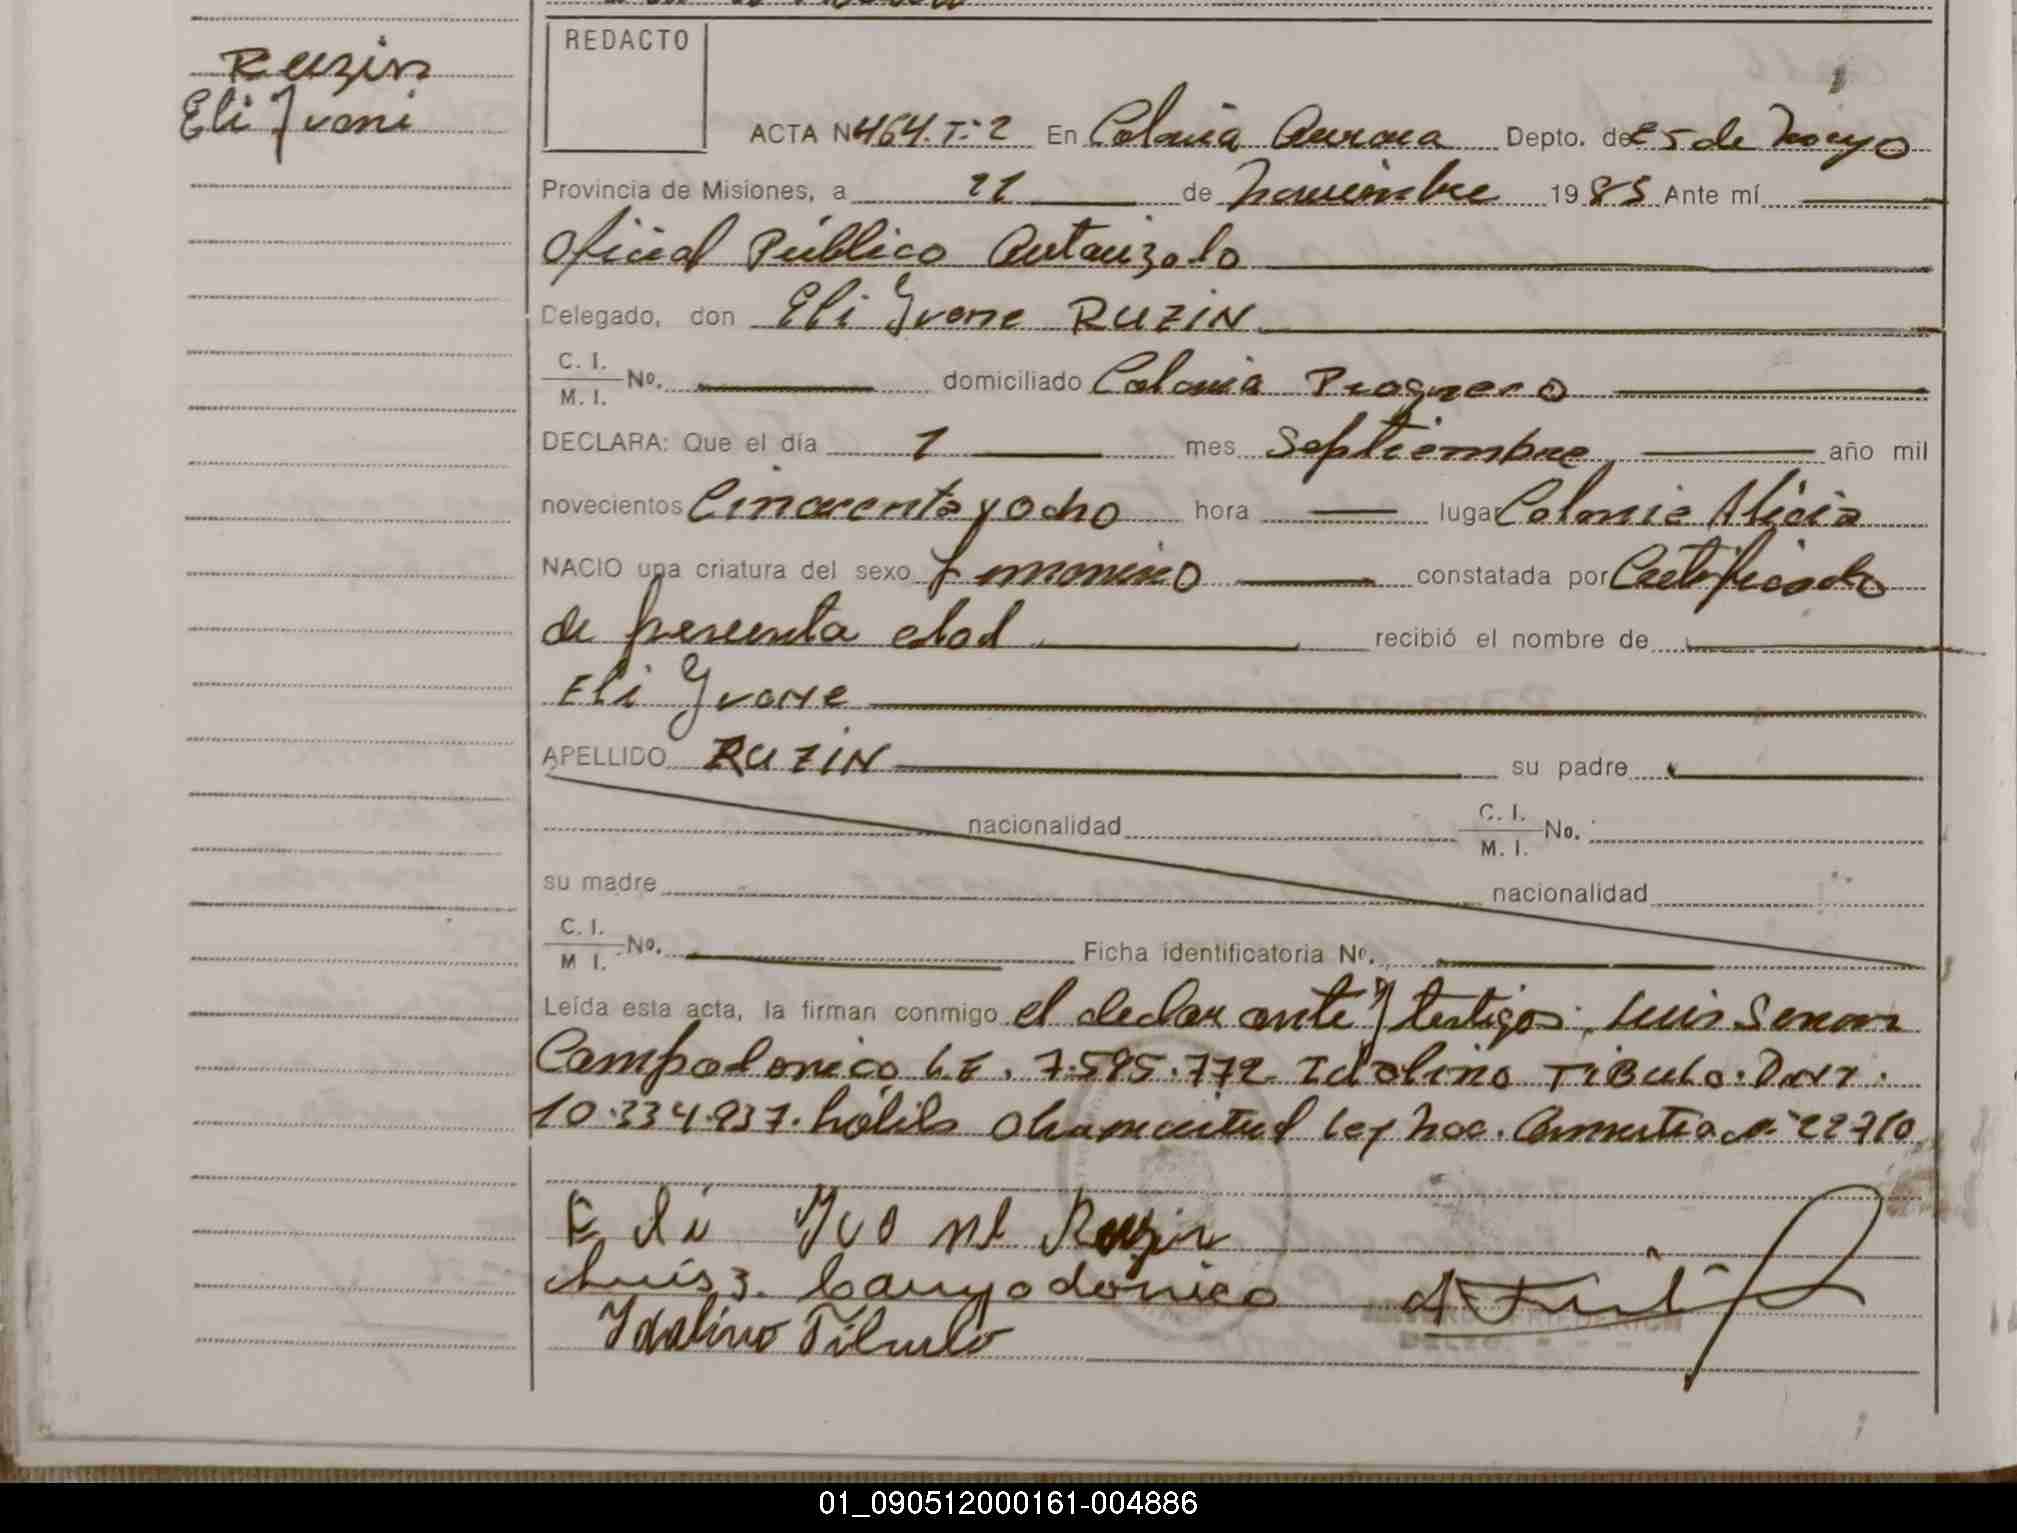 Ruzin
Eli Ivoni
REDACTO
ACTA N 464. T: 2 En Colonia Aurora Depto. de 25 de Mayo
Provincia de Misiones, a 11 de Noviembre 1985 Ante mí
Oficial Público Autorizado
Delegado, don Eli Ivone RUZIN
C. I.
M. I. No. domiciliado Colonia Progreso
DECLARA: Que el día 1 mes Septiembre año mil
novecientos Cincuenta y ocho hora lugar Colonia Alicia
NACIO una criatura del sexo femenino constatada por Certificado
de presunta edad recibió el nombre de
Eli Ivone
APELLIDO RUZIN su padre
nacionalidad C. I.
M. I. No.
su madre nacionalidad
C. I.
M I. No. Ficha identificatoria No.
Leída esta acta, la firman conmigo el declarante y testigos: Luis
Campodonico L.E. 7.595.772 Idolino TiBulo. DNI.
10.334.937. Ley Nac. Amnistia Nº 22710
Eli Ivone Ruzin
Luis Z. Campodonico
Idalino Tibulo
FRIEDERICH
01_090512000161-004886